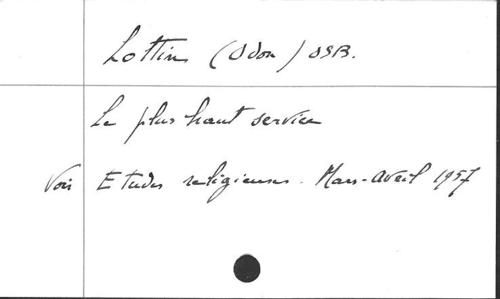 Lottin (Odon) OSB.
Le plus haut service
Voir Etudes religieuses. Mars-Avril 1957